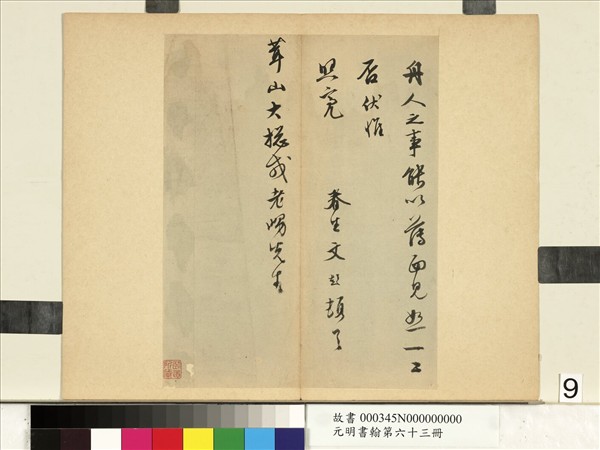 舟人之事能以薄面見恕一二
否伏惟
照亮
眷生文頓首
山大總戎老先生
9
故書 000345N000000000
元明書翰第六十三冊